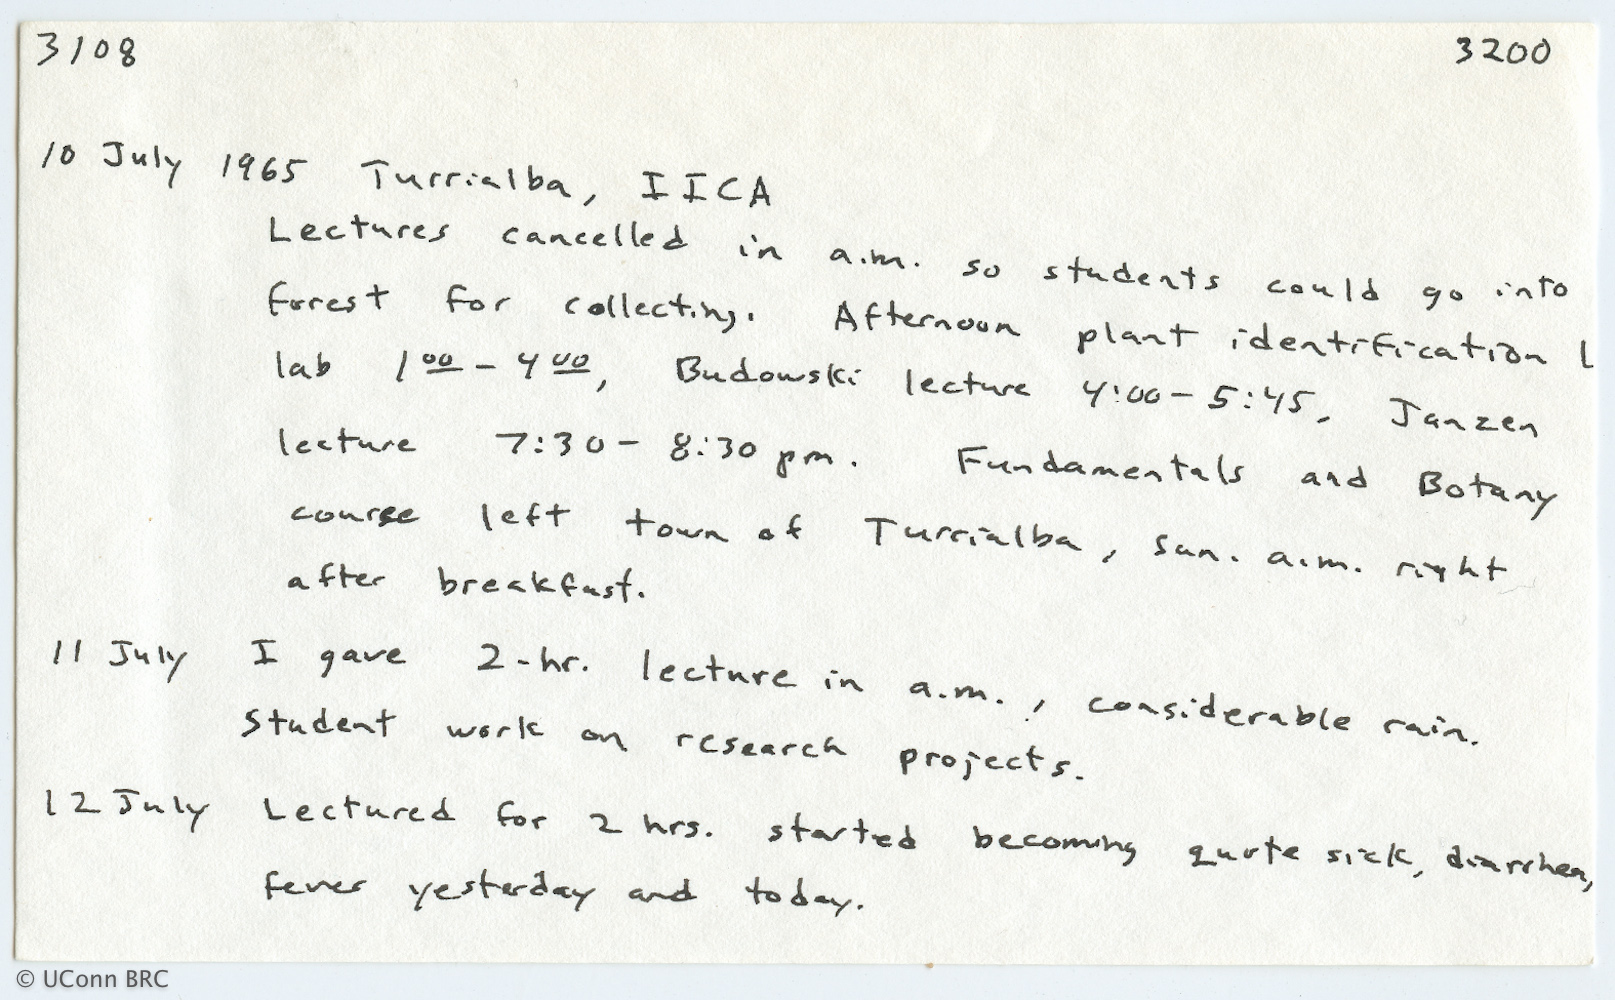 3108 3200
10 July 1965 Turrialba, IICA
Lectures cancelled in a.m. so students could go into
forest for collecting. Afternoon plant identification l
lab 1 00 - 4 00, Budowski lecture 4:00 - 5:45, Janzen
lecture 7:30 - 8:30 pm. Fundamentals and Botany
course left town of Turrialba, sun. a.m. right
after breakfast.
11 July I gave 2-hr. lecture in a.m., considerable rain.
Student work on research projects.
12 July Lectured for 2 hrs. started becoming quote sick, diarrhea,
fever yesterday and today.
© UConn BRC